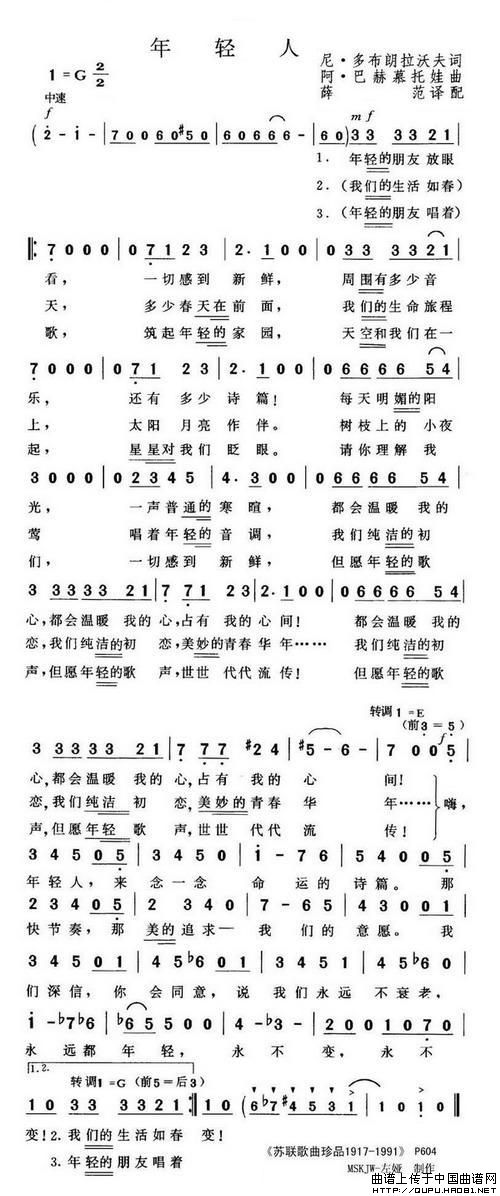 年轻人
1=G 2/2
尼·多布朗拉沃夫词
阿·巴赫慕托娃曲
薛 范译配
中速
f
mf
(2̇ - 1̇ - | 7 0 0 6 0 #5 0 | 6 0 6 6 6 - | 6 0) 3 3 3 3 2 1 |
1. 年轻的朋友 放眼
2.(我们的生活 如春)
3.(年轻的朋友 唱着)
‖: 7 0 0 0 | 0 7 1 2 3 | 2 · 1 0 0 | 0 3 3 3 3 2 1 |
看, 一切感到 新鲜, 周围有多少音
天, 多少春天在前面, 我们的生命旅程
歌, 筑起年轻的家园, 天空和我们在一
7 0 0 0 | 0 7 1 2 3 | 2 · 1 0 0 | 0 6 6 6 6 5 4 |
乐, 还有多少诗篇! 每天明媚的阳
上, 太阳月亮作伴。 树枝上的小夜
起, 星星对我们眨眼。 请你理解我
3 0 0 0 | 0 2 3 4 5 | 4 · 3 0 0 | 0 6 6 6 6 5 4 |
光, 一声普通的寒暄, 都会温暖 我的
莺 唱着年轻的音调, 我们纯洁的初
们, 一切感到新鲜, 但愿年轻的歌
3 3 3 3 3 2 1 | 7 7 7 2 3 | 2 · 1 0 0 | 0 6 6 6 6 5 4 |
心,都会温暖 我的 心,占有 我的 心间! 都会温暖 我的
恋,我们纯洁的初 恋,美妙的青春 华年…… 我们纯洁的初
声,但愿年轻的歌 声,世世代代 流传! 但愿年轻的歌
转调1=E
(前3=5)
f
3 3 3 3 3 2 1 | 7 7 7 #2 4 | #5 - 6 - | 7 0 0 5 |
心,都会温暖 我的 心,占有 我的 心 间!
恋,我们纯洁 初 恋,美妙的青春 华 年…… 嗨,
声,但愿年轻 歌 声,世世代代 流 传!
3 4 5 0 5 | 3 4 5 0 | 1̇ - 7 6 | 5 4 0 0 5 |
年轻人,来 念一念 命 运的 诗篇。 那
2 3 4 0 5 | 2 3 4 0 | 7 - 6 5 | 4 3 0 0 1 |
快节奏,那 美的追求— 我 们的 意愿。 我
3 4 5 0 1 | 4 5 ♭6 0 1 | 3 4 5 1 | 4 5 ♭6 0 |
们深信,你 会同意,说 我们永远 不衰老,
1̇ - ♭7 ♭6 | ♭6 5 5 0 0 | 4 - ♭3 - | 2 0 0 1 0 7 0 |
永 远都 年轻, 永 不 变, 永 不
1.2.
转调1=G (前5=后3)
1 0 3 3 3 3 2 1 :‖ 1 0 (6 ♭7 #4 5 3 1 | 1̇ 0 1 0) ‖
变!2.我们的生活 如春 变!
3.年轻的朋友 唱着
《苏联歌曲珍品1917-1991》 P604
MSKJW-左娅 制作
曲谱上传于中国曲谱网
HTTP://QUPU.HAO81.NET